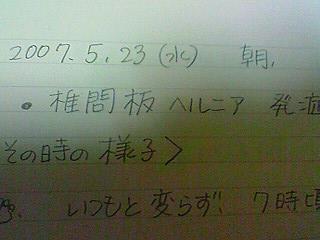 2007.5.23(水) 朝.
• 椎間板ヘルニア 発症
その時の様子>
いつもと変らず! 7時頃